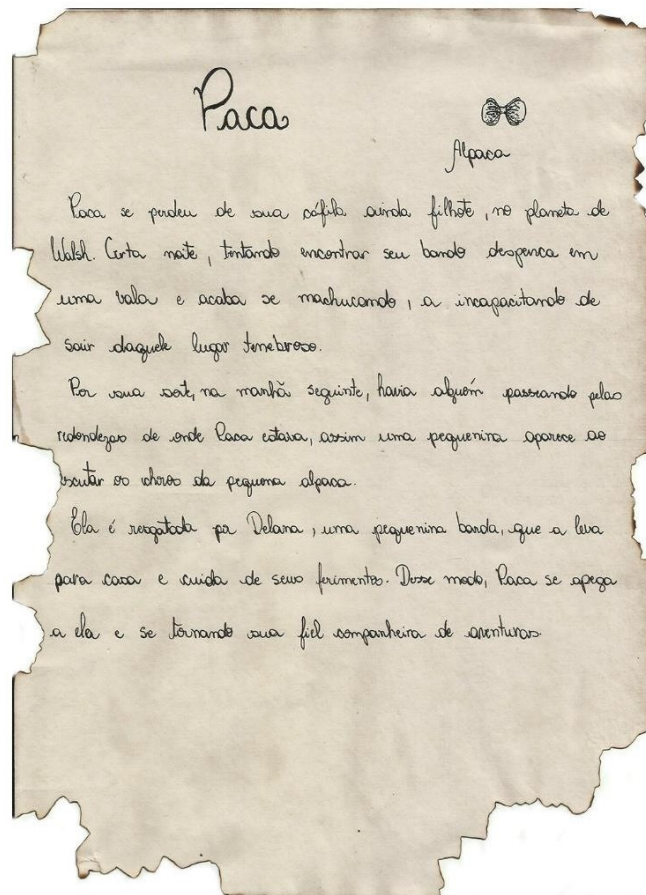 Paca
Alpaca
Paca se perdeu de sua cáfila ainda filhote, no planeta de
Walsh. Certa noite, tentando encontrar seu bando despenca em
uma vala e acaba se machucando, a incapacitando de
sair daquele lugar tenebroso.
Por sua sorte, na manhã seguinte, havia alguém passeando pelas
redondezas de onde Paca estava, assim uma pequenina aparece ao
escutar os choros da pequena alpaca.
Ela é resgatada por Delana, uma pequenina barda, que a leva
para casa e cuida de seus ferimentos. Desse modo, Paca se apega
a ela e se tornando sua fiel companheira de aventuras.